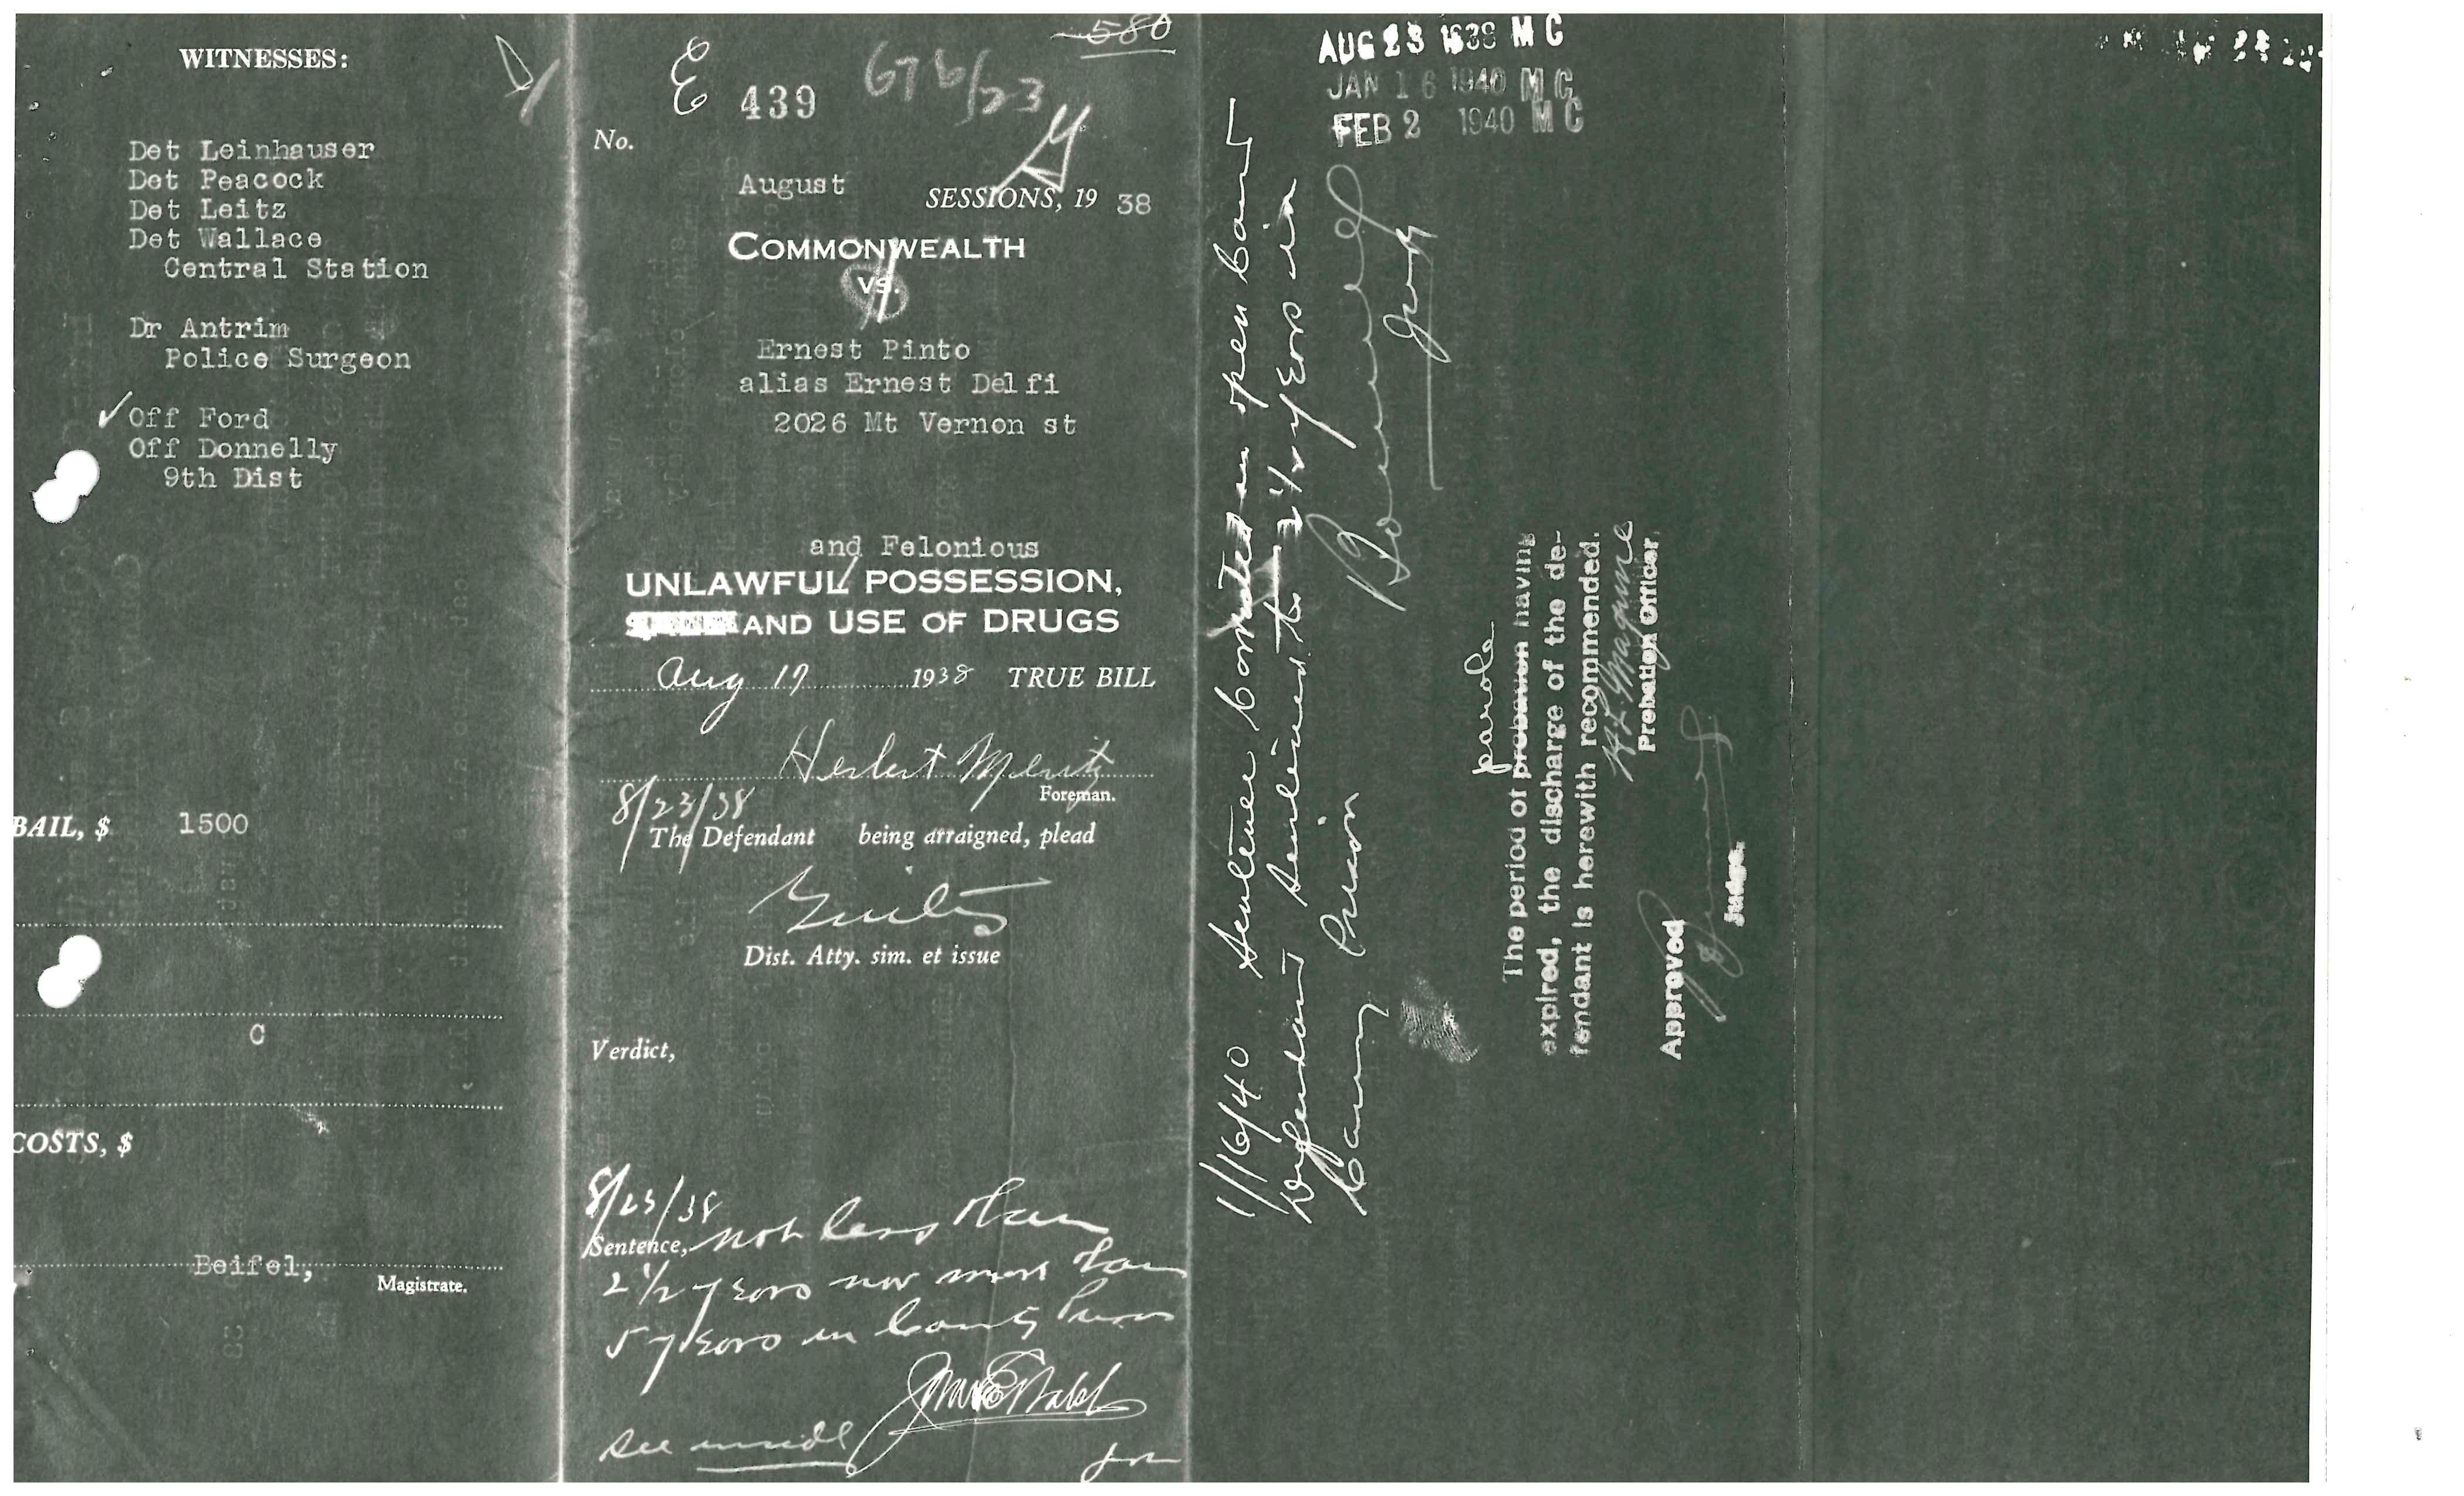 WITNESSES:
Det Leinhauser
Det Peacock
Det Leitz
Det Wallace
Central Station
Dr Antrim
Police Surgeon
Off Ford
Off Donnelly
9th Dist
BAIL, $ 1500
C
COSTS, $
Beifel,
Magistrate.
580
E 439
No.
August SESSIONS, 19 38
COMMONWEALTH
VS.
Ernest Pinto
alias Ernest Delfi
2026 Mt Vernon st
and Felonious
UNLAWFUL POSSESSION,
AND USE OF DRUGS
Aug 17 1938 TRUE BILL
Herbert
Foreman.
8/23/38
The Defendant being arraigned, plead
Guilty
Dist. Atty. sim. et issue
Verdict,
8/23/38
Sentence, not less than
2 1/2 years nor more than
5 years in County Prison
see inside
AUG 23 1938 M C
JAN 16 1940 M C
FEB 2 1940 M C
1/16/40 Sentence in open Court
Defendant sentenced to years in
County Prison
Judge
parole
The period of probation having
expired, the discharge of the de-
fendant is herewith recommended.
Probation Officer.
Approved
Judge.